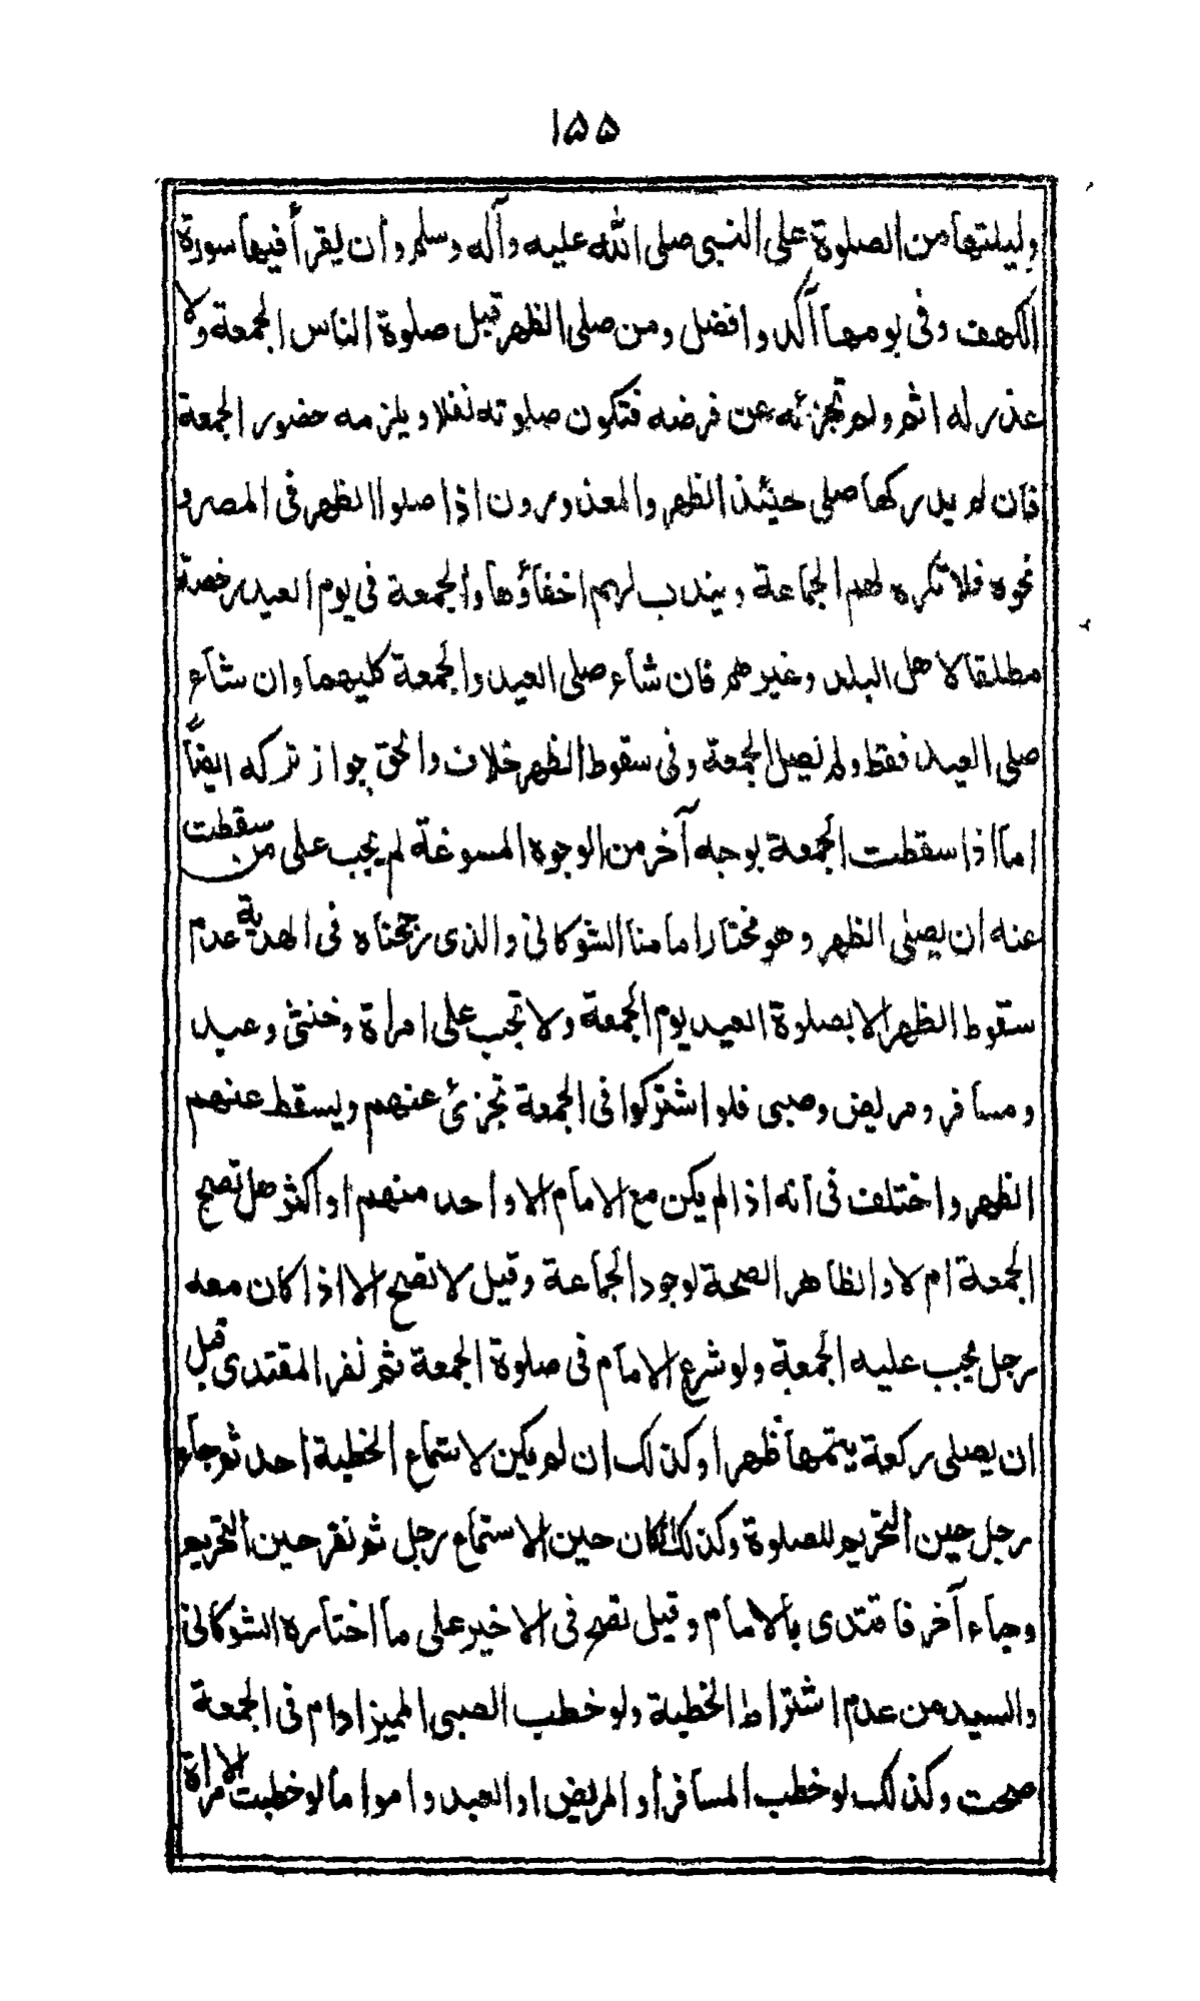 ١٥٥
وليلتها من الصلوة على النبي صلى الله عليه وآله وسلم وأن يقرأ فيها سورة
الكهف وفى يومها آكد وافضل ومن صلى الظهر قبل صلوة الناس الجمعة ولا
عذر له اثم ولم تجزئه عن فرضه فتكون صلوته نفلا ويلزمه حضور الجمعة
فان لم يدركها صلى حينئذ الظهر والمعذورون اذا صلوا الظهر فى المصر و
نحوه فلا تكره لهم الجماعة ويندب لهم اخفاؤها والجمعة فى يوم العيد رخصة
مطلقا لاهل البلد وغيرهم فان شاء صلى العيد والجمعة كليهما وان شاء
صلى العيد فقط ولم يصل الجمعة وفى سقوط الظهر خلاف والحق جواز تركه ايضاً
اما اذا سقطت الجمعة بوجه آخر من الوجوه المسوغة لم يجب على من سقطت
عنه ان يصلى الظهر وهو مختار امامنا الشوكانى والذى رجحناه فى الهدية عدم
سقوط الظهر الا بصلوة العيد يوم الجمعة ولا تجب على امرأة وخنثى وعبد
ومسافر ومريض وصبى فلو اشتركوا فى الجمعة تجزئ عنهم ويسقط عنهم
الظهر واختلف فى انه اذا لم يكن مع الامام الا واحد منهم او اكثر هل تصح
الجمعة ام لا والظاهر الصحة لوجود الجماعة وقيل لا تصح الا اذا كان معه
رجل يجب عليه الجمعة ولو شرع الامام فى صلوة الجمعة ثم نفر المقتدى قبل
ان يصلى ركعة يتمها ظهرا وكذلك ان لم يكن لاستماع الخطبة احد ثم جاء
رجل حين التحريم للصلوة وكذلك كان حين الاستماع رجل ثم نفر حين التحريم
وجاء آخر فاقتدى بالامام وقيل تصح فى الاخير على ما اختاره الشوكانى
والسيد من عدم اشتراط الخطبة ولو خطب الصبى المميز او ام فى الجمعة
صحت وكذلك لو خطب المسافر او المريض او العبد واموا ما لو خطبت الامرأة